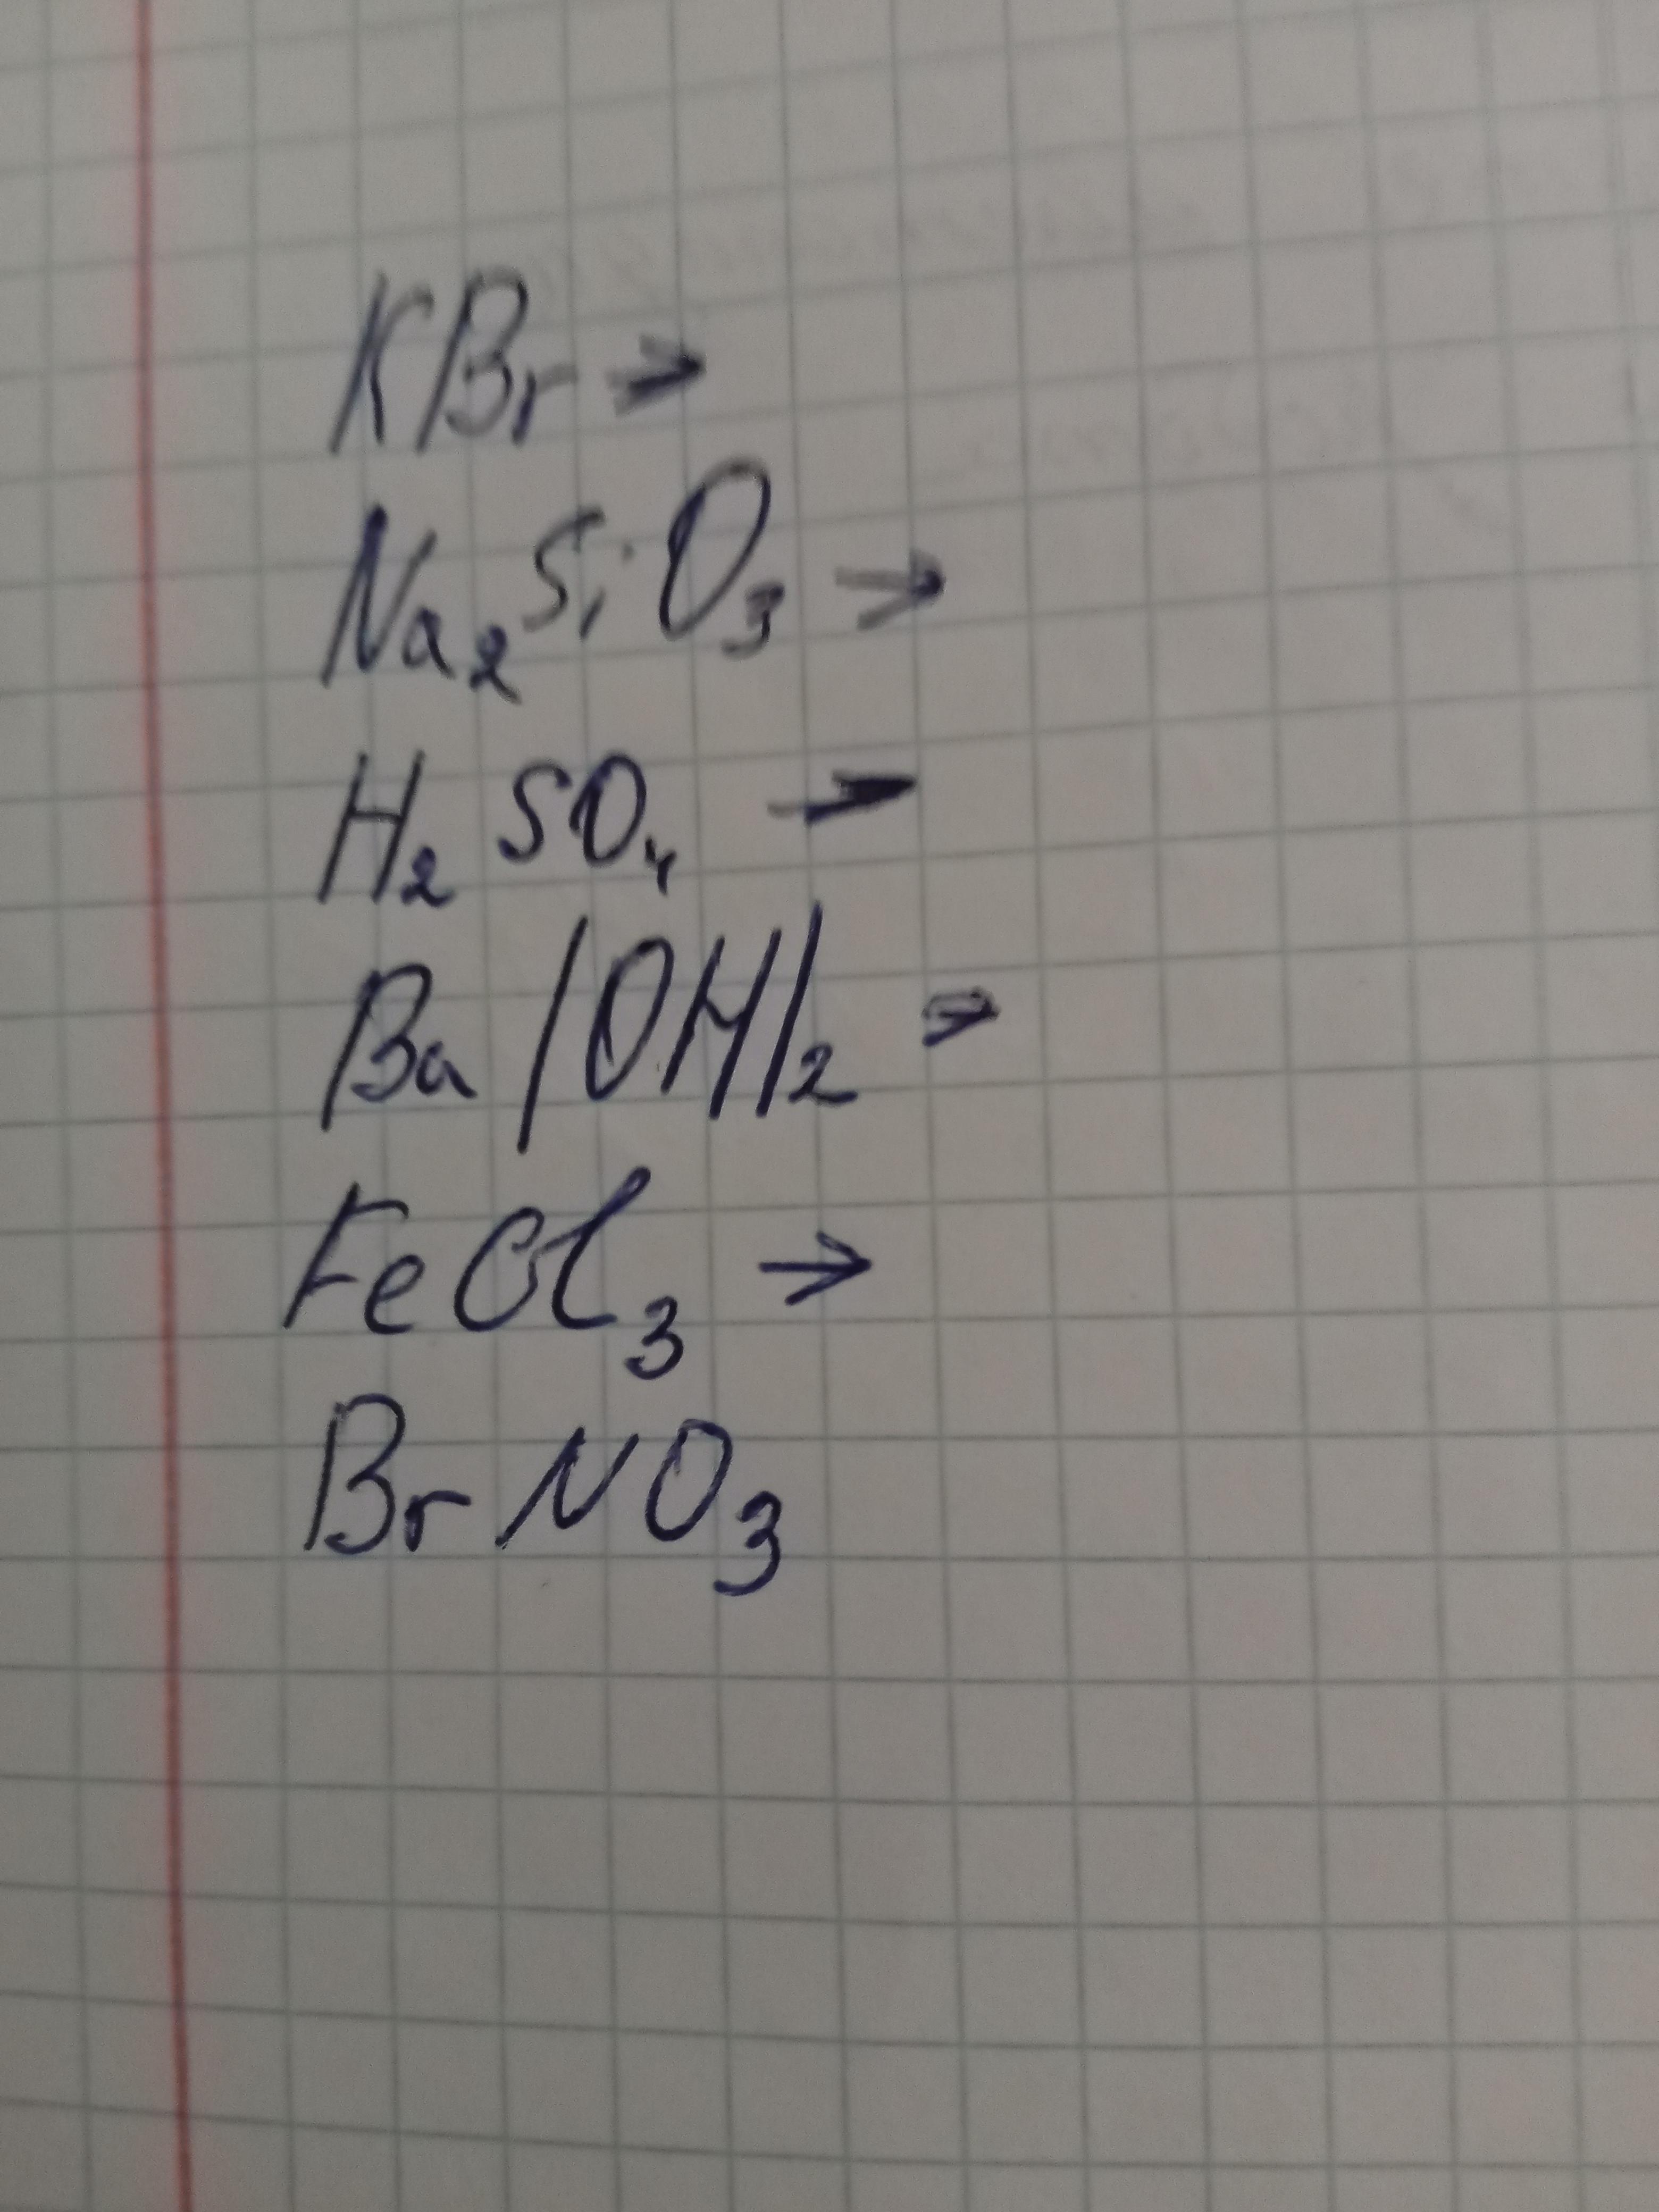 KBr →
Na₂SiO₃ →
H₂SO₄ →
Ba(OH)₂ →
FeCl₃ →
BrNO₃